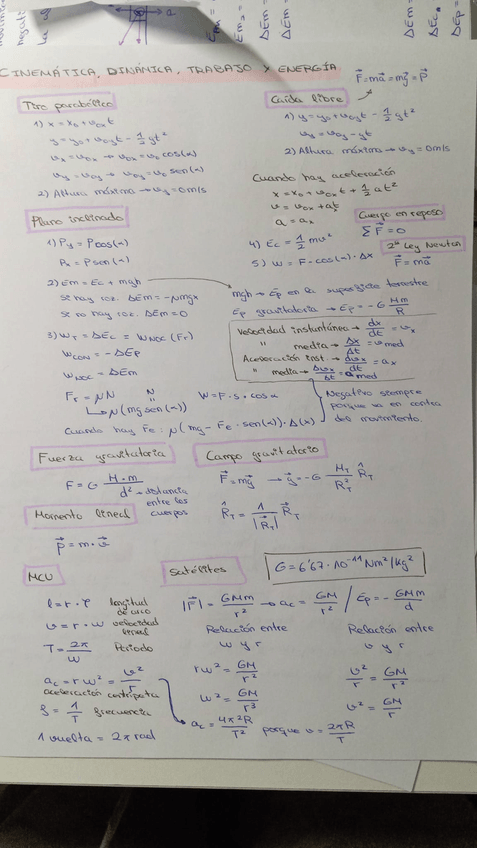 CINEMÁTICA, DINÁMICA, TRABAJO Y ENERGÍA
F⃗=ma⃗=mg⃗=P⃗
Tiro parabólico
1) x = x₀ + v₀ₓt
y = y₀ + v₀yt - 1/2 gt²
vₓ = v₀ₓ → v₀ₓ = v₀ cos(α)
vy = v₀y → v₀y = v₀ sen(α)
2) Altura máxima → vy = 0 m/s
Caída libre
1) y = y₀ + v₀yt - 1/2 gt²
vy = v₀y - gt
2) Altura máxima → vy = 0 m/s
Cuando hay aceleración
x = x₀ + v₀ₓt + 1/2 at²
v = v₀ₓ + at
a = aₓ
Cuerpo en reposo
Σ F⃗ = 0
2ª Ley Newton
F⃗ = ma⃗
Plano inclinado
1) Py = P cos(α)
Pₓ = P sen(α)
2) Em = Ec + mgh
si hay roz. ΔEm = -μmgx
si no hay roz. ΔEm = 0
3) Wт = ΔEc = WNOC (Fr)
WCON = -ΔEp
WNOC = ΔEm
Fr = μN
N
"
μ(mg sen(α))
Cuando hay Fe: μ(mg - Fe · sen(α)) · Δ(x)
4) Ec = 1/2 mv²
5) W = F · cos(α) · Δx
mgh → Ep en la superficie terrestre
Ep gravitatoria → Ep = -G Mm/R
Velocidad instantánea → dx/dt = vₓ
" media → Δx/Δt = v med
Aceleración inst. → dvₓ/dt = aₓ
" media → Δvₓ/Δt = a med
W = F · s · cos α
Negativo siempre
porque va en contra
del movimiento.
Fuerza gravitatoria
F = G M·m/d² → distancia
entre los
cuerpos
Campo gravitatorio
F⃗ = mg⃗ → g⃗ = -G Mт/Rт² R̂т
R̂т = 1/|R⃗т| R⃗т
Momento lineal
p⃗ = m · v⃗
MCU
l = r · φ longitud
de arco
v = r · ω velocidad
lineal
T = 2π/ω Periodo
ac = rω² = v²/r
aceleración centrípeta
f = 1/T frecuencia
1 vuelta = 2π rad
Satélites
G = 6'67 · 10⁻¹¹ Nm²/kg²
|F⃗| = GMm/r² → ac = GM/r² / Ep = - GMm/d
Relación entre
ω y r
rω² = GM/r²
ω² = GM/r³
ac = 4π²R/T² porque v = 2πR/T
Relación entre
v y r
v²/r = GM/r²
v² = GM/r